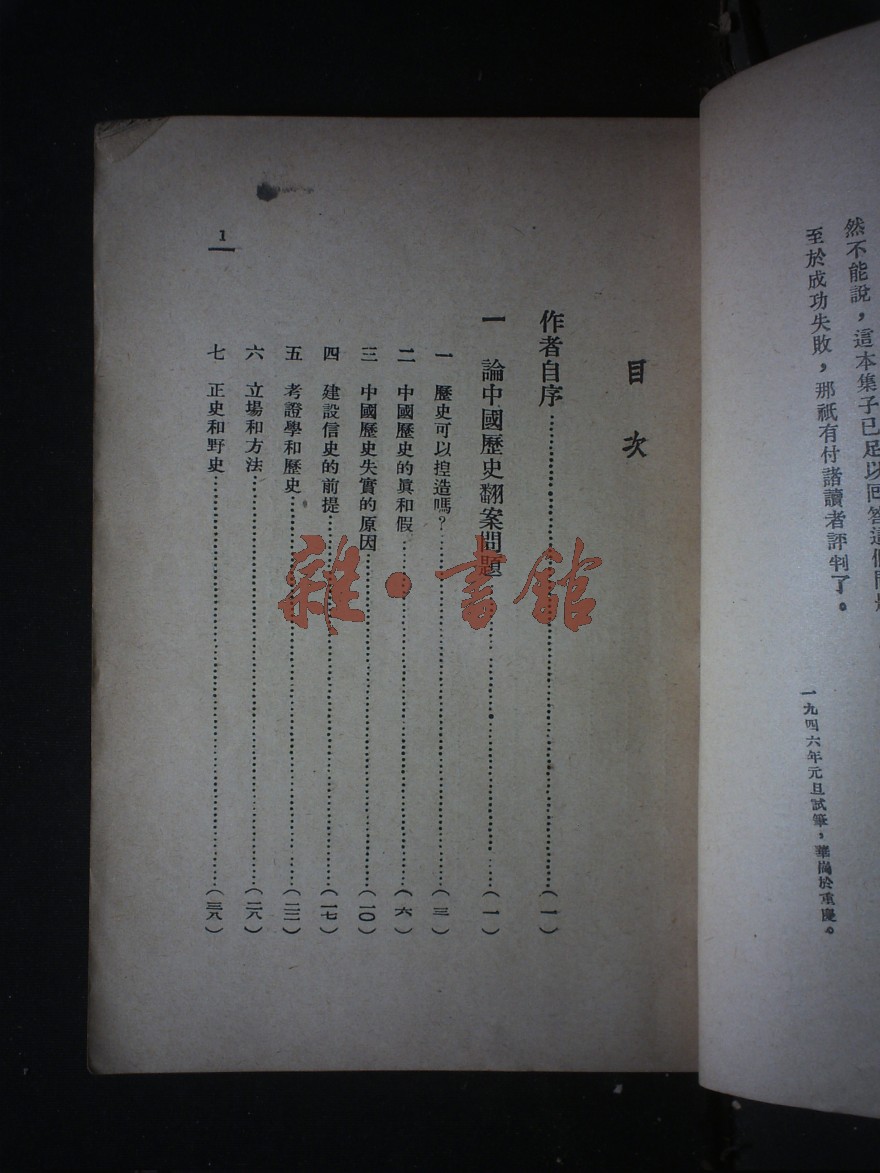 然不能說，這本集子已足以回答這個問
至於成功失敗，那祇有付諸讀者評判了。
一九四六年元旦試筆，華崗於重慶。
目次
作者自序……（一）
一 論中國歷史翻案問題……（一）
一 歷史可以揑造嗎？……（三）
二 中國歷史的眞和假……（六）
三 中國歷史失實的原因……（一〇）
四 建設信史的前提……（一七）
五 考證學和歷史……（二二）
六 立場和方法……（二八）
七 正史和野史……（三八）
1
雜·書館